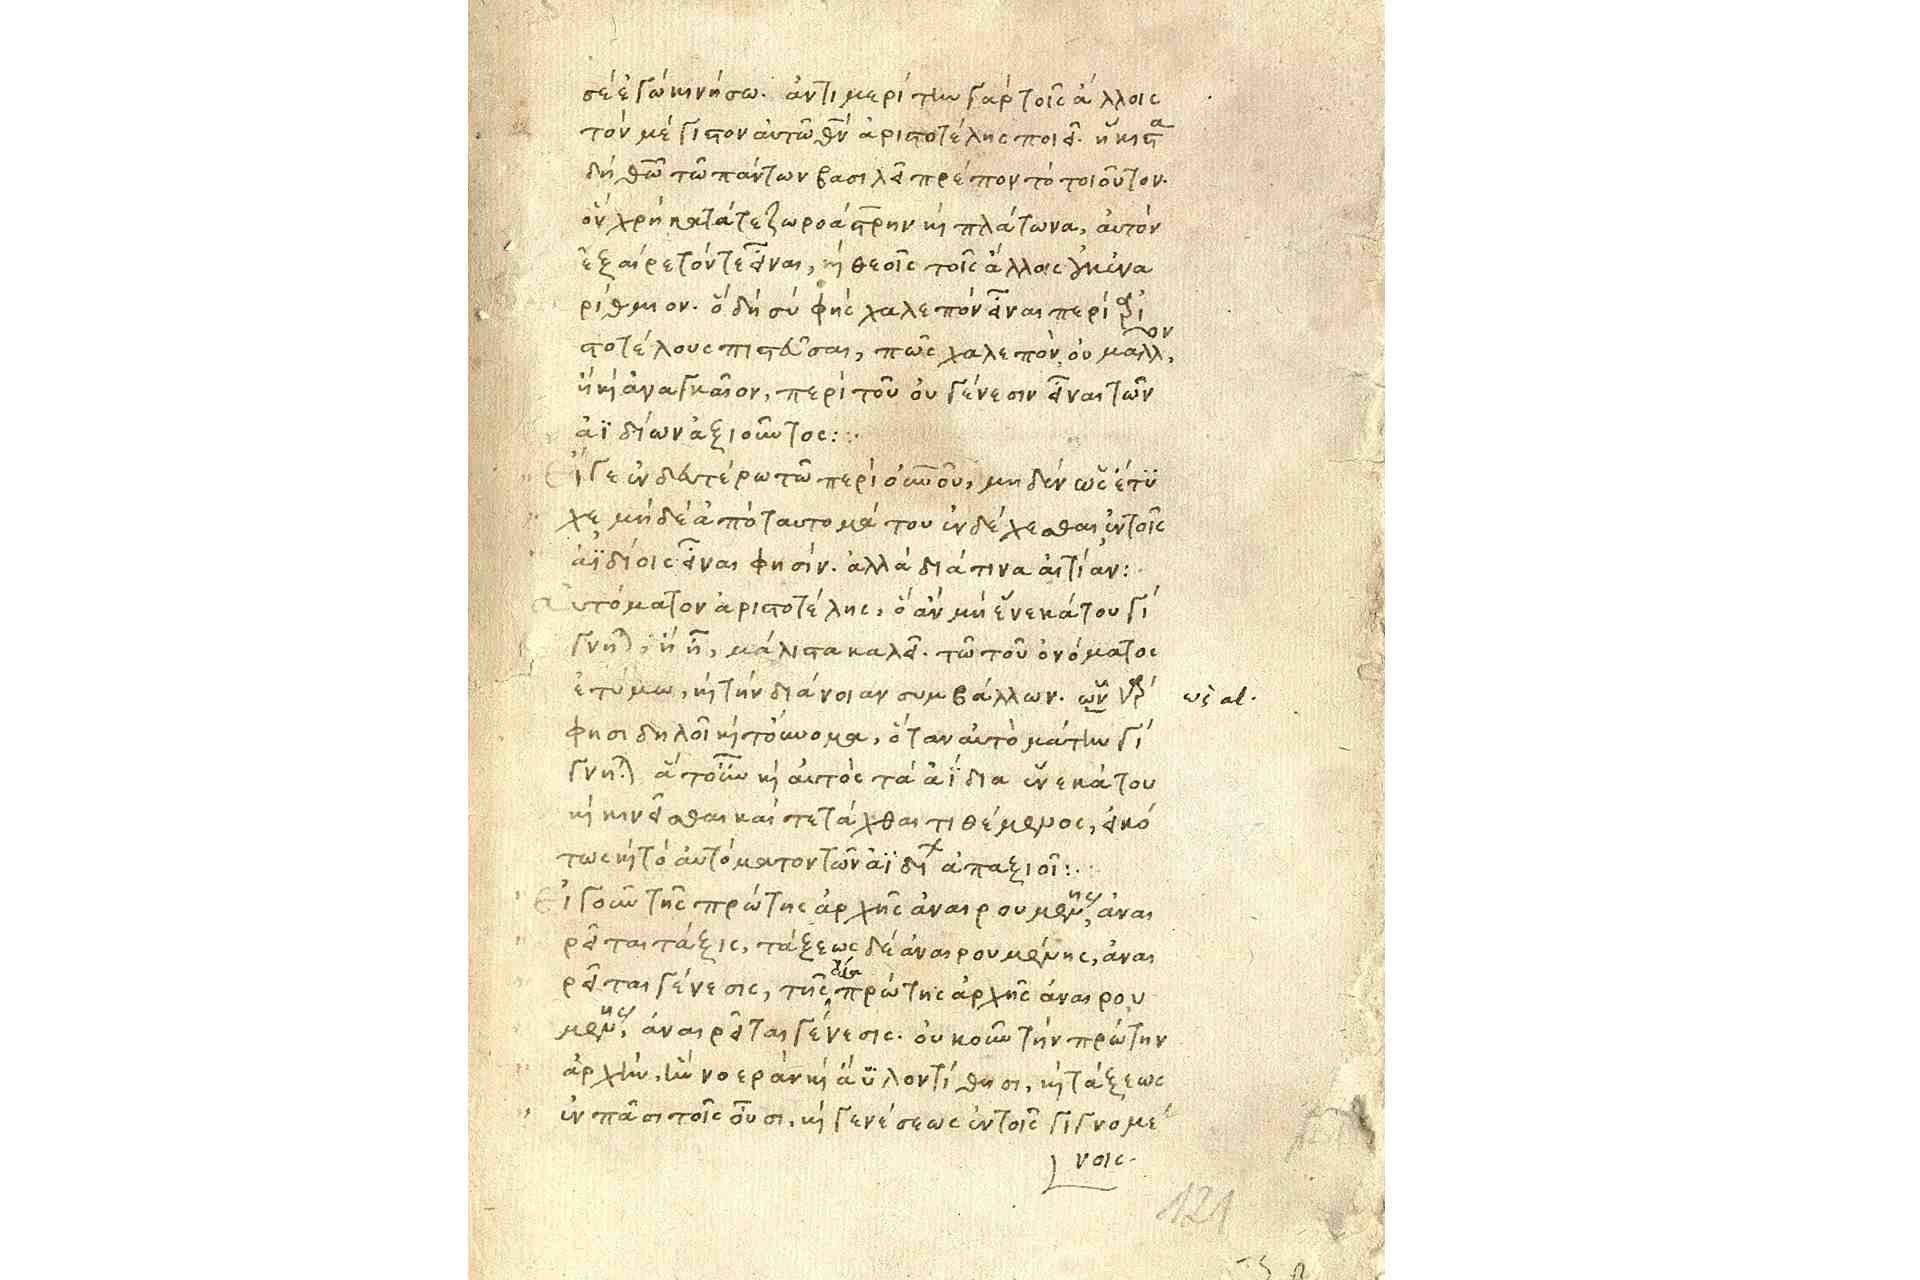 σέ ἐγὼ κινήσω. ἀντιμερίτην γὰρ τοῖς ἄλλοις
τὸν μέγιστον αὐτῶ θεὸν ἀριστοτέλης ποιεῖ. ἥκιστα
δὴ θεῶ τῶ πάντων βασιλεῖ πρέπον τὸ τοιοῦτον.
ὃν χρὴ κατά τε ζωροάστρην καὶ πλάτωνα, αὐτὸν
ἐξαίρετόν τε εἶναι, καὶ θεοῖς τοῖς ἄλλοις οὐκ ἐνα
ρίθμιον. ὃ δὴ σὺ φὴς χαλεπὸν εἶναι περὶ ἀρι
στοτέλους πιστεῦσαι, πῶς χαλεπὸν, οὐ μᾶλλον,
ἢ καὶ ἀναγκαῖον, περὶ τοῦ οὐ γένεσιν εἶναι τῶν
ἀϊδίων ἀξιοῦντος:
εἴ γε ἐν δευτέρω τῶ περὶ οὐρανοῦ, μηδὲν ὡς ἔτυ
χε μηδὲ ἀπὸ ταυτομάτου ἐνδέχεσθαι ἐν τοῖς
ἀϊδίοις εἶναι φησίν. ἀλλὰ διά τινα αἰτίαν:
αὐτόματον ἀριστοτέλης, ὃ ἂν μὴ ἕνεκά του γί
γνηται, ἢ ᾖ, μάλιστα καλεῖ. τῶ τοῦ ὀνόματος
ἐτύμω, καὶ τὴν διάνοιαν συμβάλλων. γὰρ ὡς al.
φησι δηλοῖ καὶ τοὔνομα, ὅταν αὐτὸ μάτην γί
γνηται ἅ τοίνυν καὶ αὐτὸς τὰ ἀΐδια ἕνεκά του
καὶ κινεῖσθαι καὶ τετάχθαι τιθέμενος, εἰκό
τως καὶ τὸ αὐτόματον τῶν ἀϊδίων ἀπαξιοῖ:
εἰ γοῦν τῆς πρώτης ἀρχῆς ἀναιρουμένης, ἀναι
ρεῖται τάξις, τάξεως δὲ ἀναιρουμένης, ἀναι
ρεῖται γένεσις, τῆς ἄρα πρώτης ἀρχῆς ἀναιρου
μένης, ἀναιρεῖται γένεσις. οὐκοῦν τὴν πρώτην
ἀρχὴν, ἣν νοερὰν καὶ ἄϋλον τίθησι, καὶ τάξεως
ἐν πᾶσι τοῖς οὖσι, καὶ γενέσεως ἐν τοῖς γιγνομέ
νοις.
121